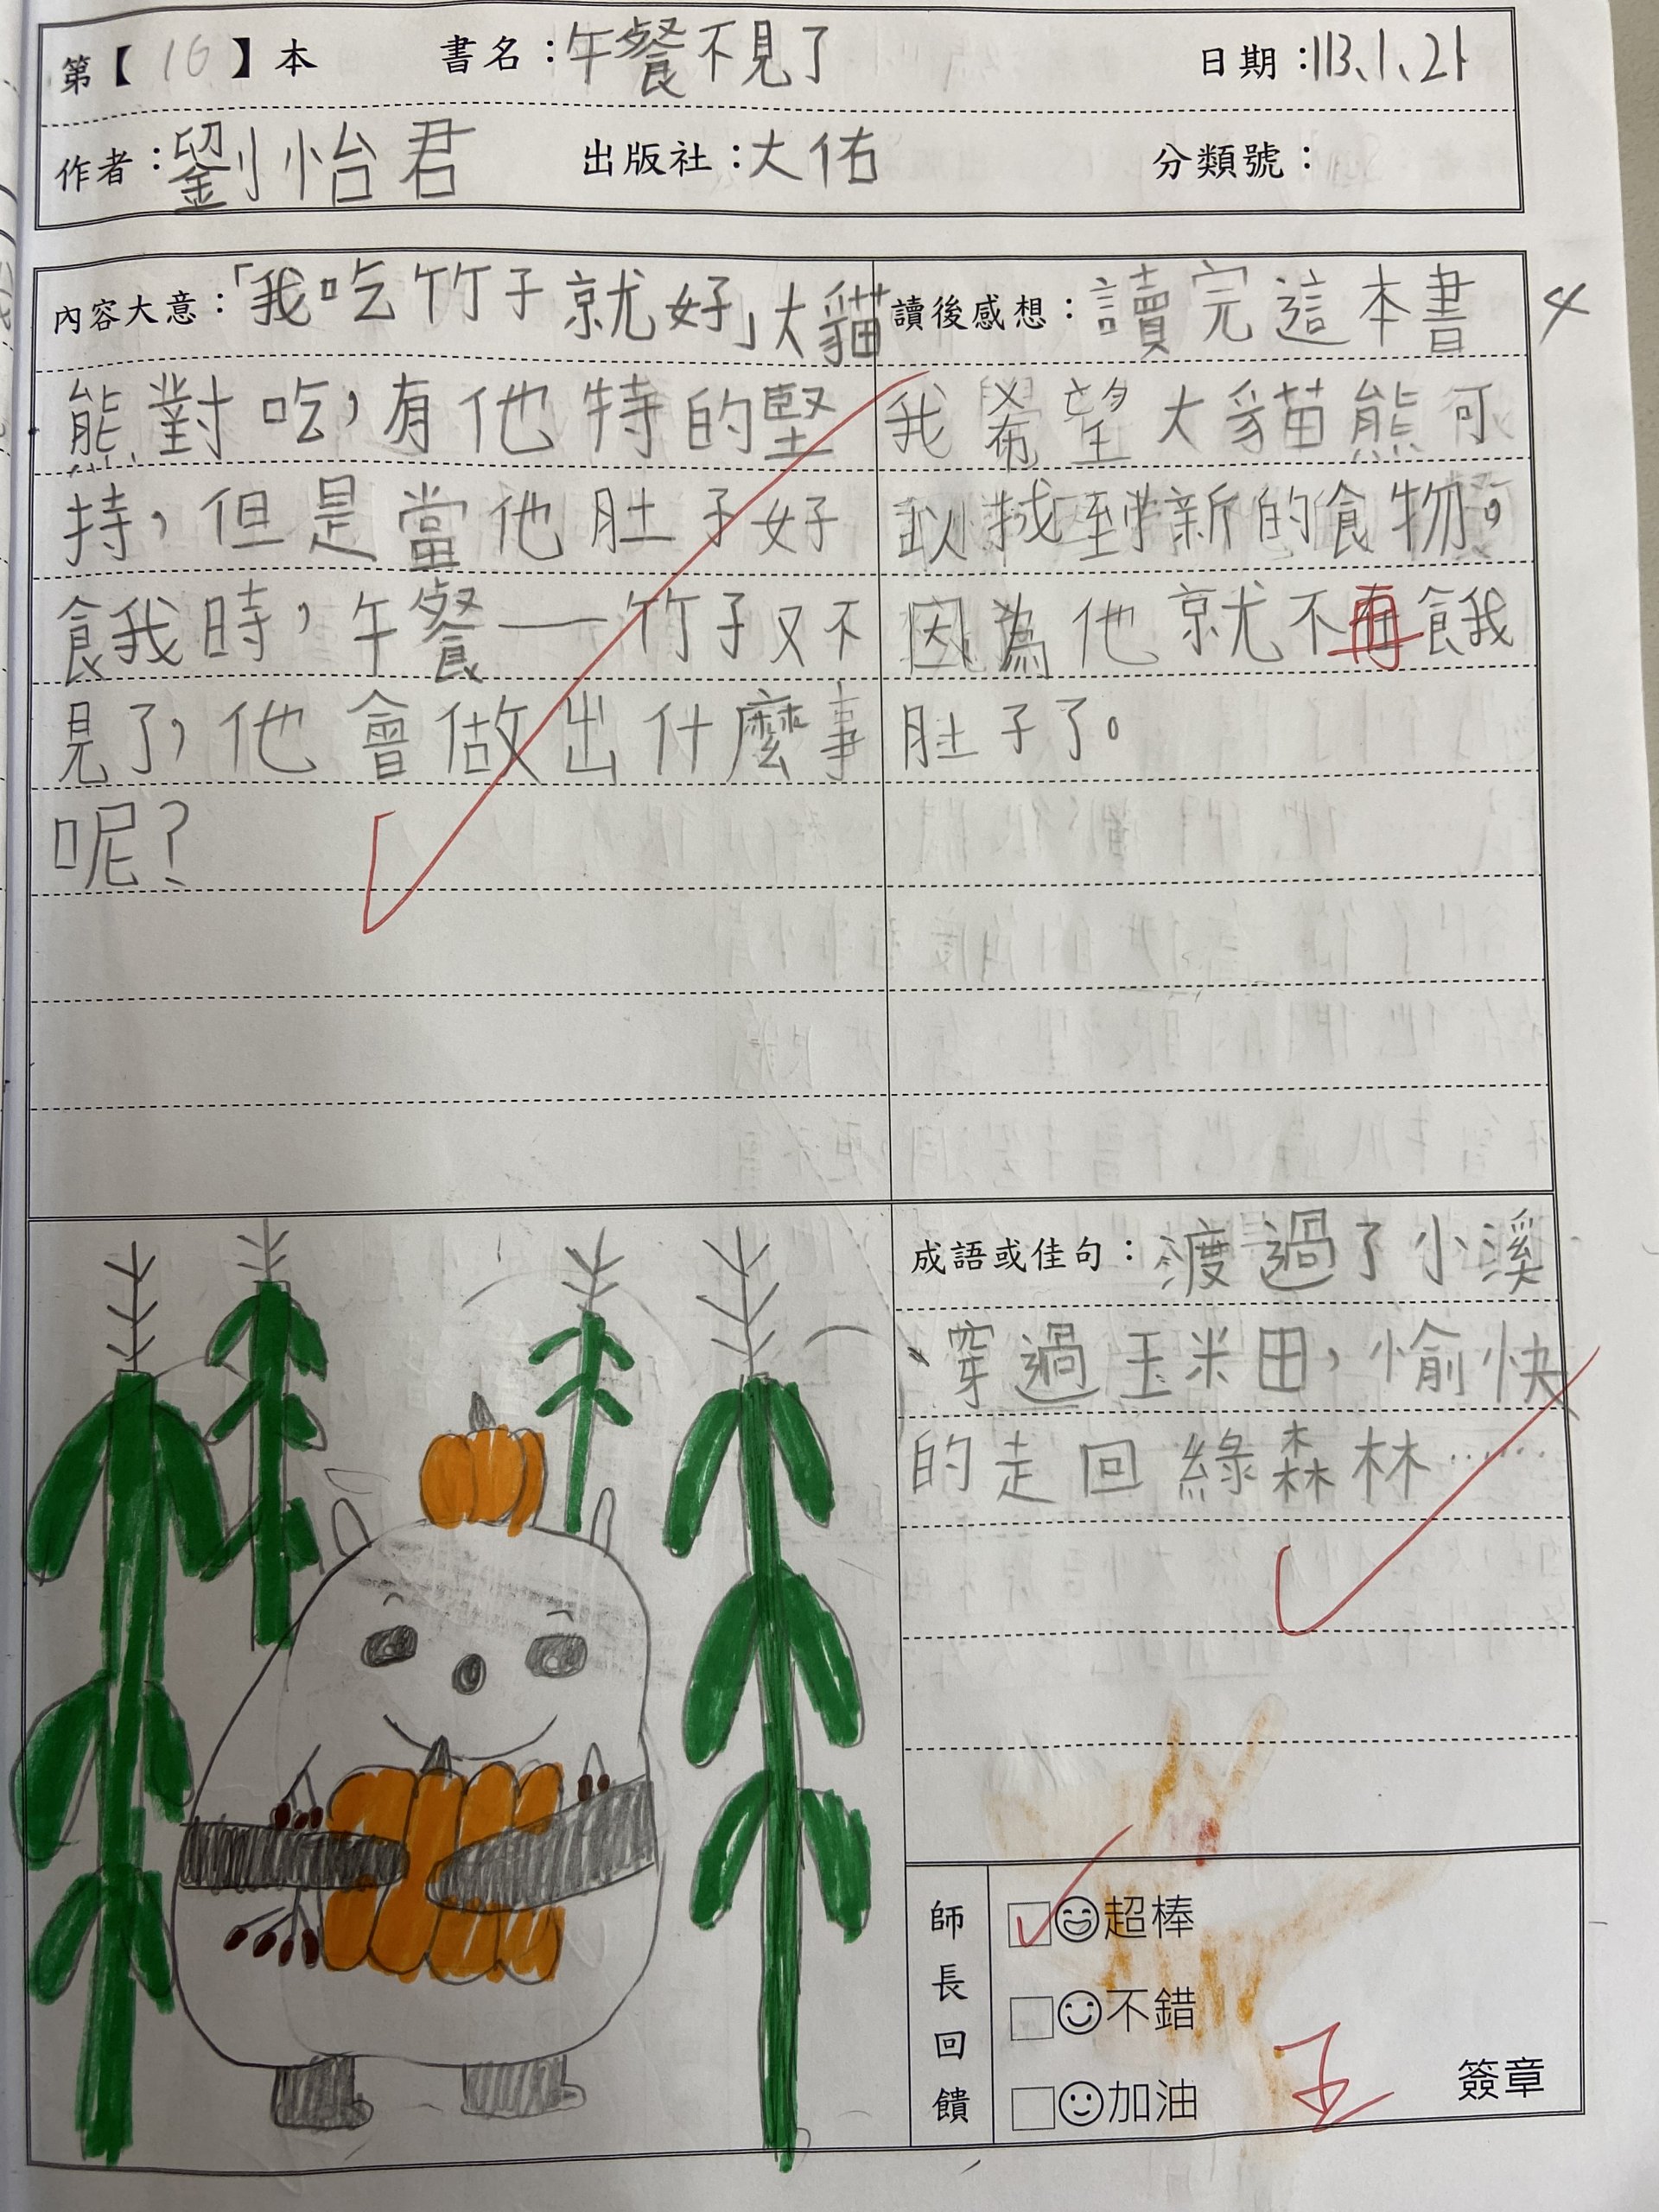 第【16】本 書名：午餐不見了 日期：113.1.21
作者：劉怡君 出版社：大佑 分類號：
內容大意：「我吃竹子就好」大貓
熊對吃，有他特的堅
持，但是當他肚子好
餓時，午餐——竹子又不
見了，他會做出什麼事
呢？
讀後感想：讀完這本書
我希望大貓熊可
以找到新的食物，
因為他就不再餓
肚子了。
4
成語或佳句：渡過了小溪
、穿過玉米田，愉快
的走回綠森林……
師長回饋
超棒
不錯
加油
簽章